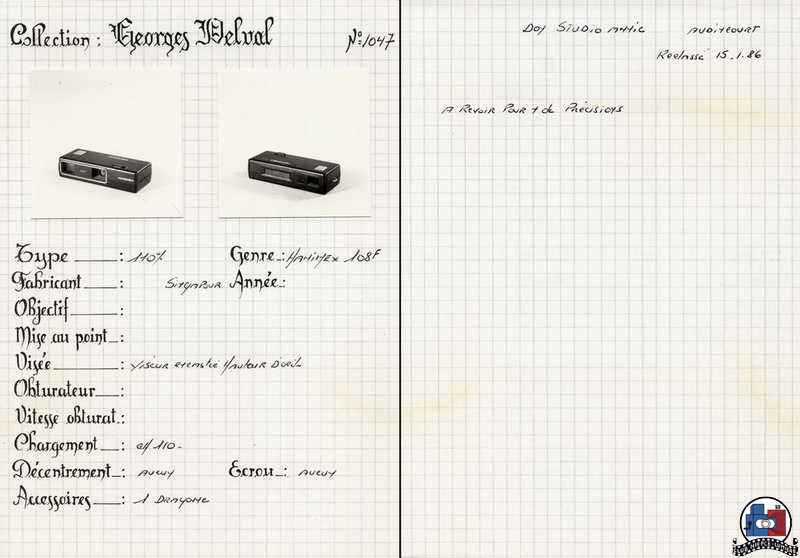 Collection : Georges Delval N° 1047
Type : 110 Genre : HANIMEX 108F
Fabricant : SINGAPOUR Année :
Objectif :
Mise au point :
Visée : Viseur Hauteur D'oeil
Obturateur :
Vitesse obturat. :
Chargement : 110
Décentrement : AUCUN Ecrou : AUCUN
Accessoires : 1 DRAGONE
DON STUDIO AUDINCOURT
15.1.86
A REVOIR POUR + de PRÉCISIONS